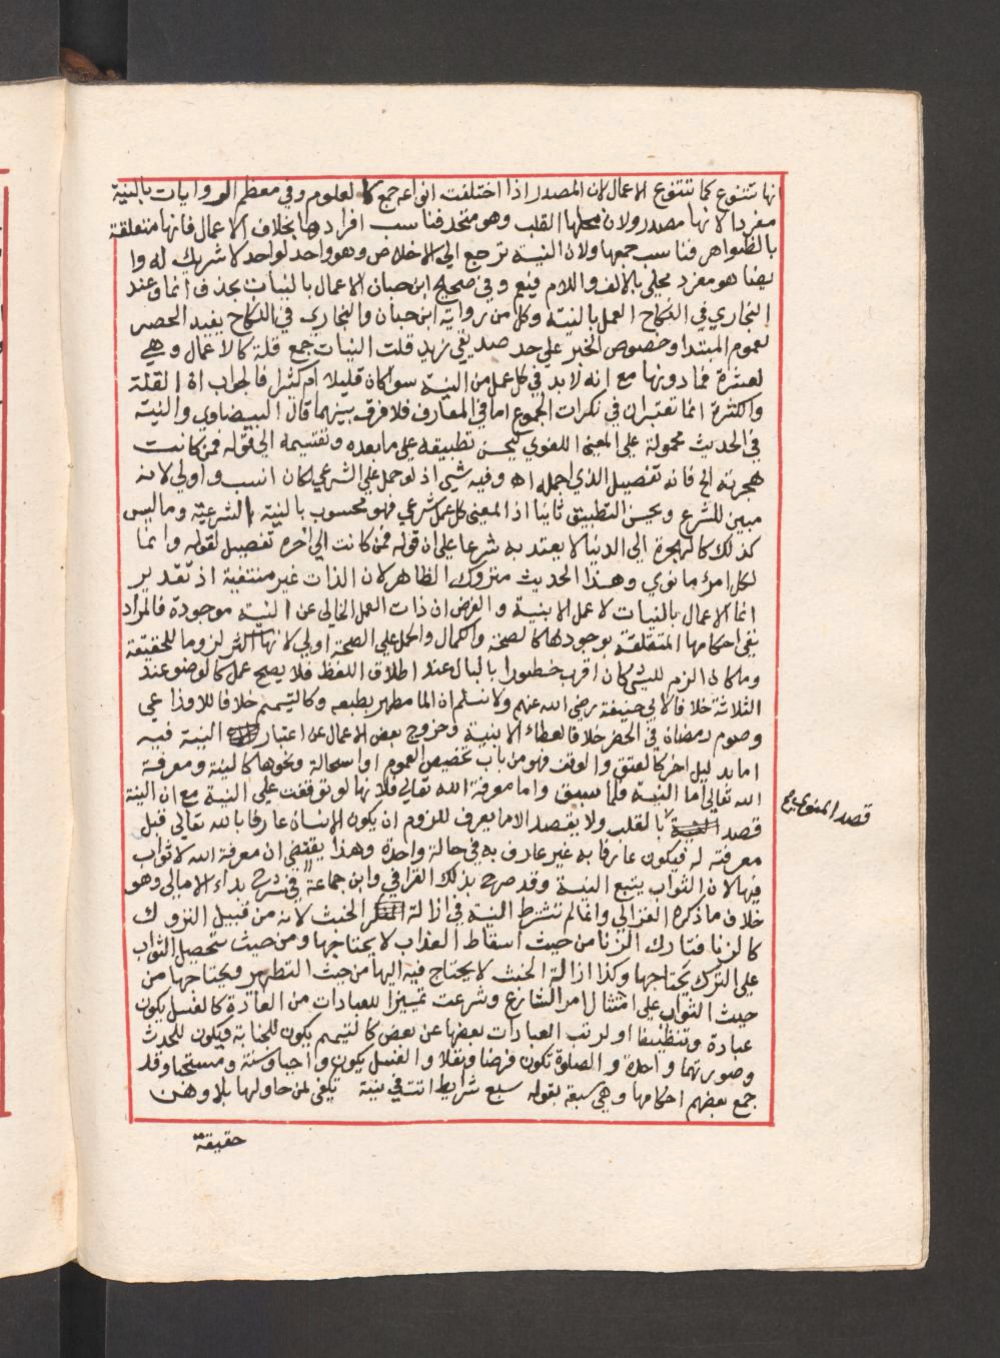 نها تتنوع كما تتنوع الاعمال لان المصدر اذا اختلفت انواعه جمع كالعلوم وفي معظم الروايات بالنية
مفردا لانها مصدر ولان محلها القلب وهو متحد فناسب افرادها بخلاف الاعمال فانها متعلقة
بالظواهر فناسب جمعها ولان النية ترجع الي الاخلاص وهو واحد لواحد لا شريك له وا
يضا هو مفرد محلي بالالف واللام فيعم وفي صحيح ابن حبان الاعمال بالنيات بحذف انما وعند
البخاري في النكاح العمل بالنية وكل من رواية ابن حبان والبخاري في النكاح يفيد الحصر
لعموم المبتدا وخصوص الخبر علي حد صديقي زيد قلت النيات جمع قلة كالاعمال وهي
لعشرة فما دونها مع انه لا بد في كل عمل من النية سوا كان قليلا ام كثيرا فالجواب ان القلة
والكثرة انما تعتبران في نكرات الجموع اما في المعارف فلا فرق بينهما قال البيضاوي والنية
في الحديث محمولة علي المعني اللغوي ليحسن تطبيقه علي ما بعده وتقسيمه الي قوله فمن كانت
هجرته الخ فانه تفصيل الذي اجمله اه وفيه شي اذ لو حمل علي الشرعي لكان انسب واولي لانه
مبين للشرع ويحسن التطبيق ثانيا اذ المعني كل عمل شرعي فهو محسوب بالنية الشرعية وما ليس
كذلك كالهجرة الي الدنيا لا يعتد به شرعا علي ان قوله فمن كانت الي اخره تفصيل لقوله وانما
لكل امرئ ما نوي وهذا الحديث متروك الظاهر لان الذات غير منتفية اذ تقدير
انما الاعمال بالنيات لا عمل الا بنية والغرض ان ذات العمل الخالي عن النية موجودة فالمراد
نفي احكامها المتعلقة بوجودها كالصحة والكمال والحمل علي الصحة اولي لانها اكثر لزوما للحقيقة
وما كان الزم للشي كان اقرب خطورا بالبال عند اطلاق اللفظ فلا يصح عمل كالوضو عند
الثلاثة خلافا لابي حنيفة رضي الله عنهم ولا نسلم ان الما مطهر بطبعه وكالتيمم خلافا للاوزاعي
وصوم رمضان في الحضر خلافا لعطاء الا بنية وخروج بعض الاعمال عن اعتبار النية فيه
اما بدليل اخر كالعتق والوقف فهو من باب تخصيص العموم او استحالة ونحوها كالنية ومعرفة
الله تعالي اما النية فلما سبق واما معرفة الله تعالي فلانها لو توقفت علي النية مع ان النية
قصد المنوي صح
قصد بالقلب ولا يقصد الا ما يعرف للزوم ان يكون الانسان عارفا بالله تعالي قبل
معرفته له فيكون عارفا به غير عارف به في حالة واحدة وهذا يقتضي ان معرفة الله لا ثواب
فيها لان الثواب يتبع النية وقد صرح بذلك القرافي وابن جماعة في شرح بداء الامالي وهو
خلاف ما ذكره الغزالي وانما لم تشترط النية في ازالة الخبث لانه من قبيل التروك
كالزنا فتارك الزنا من حيث اسقاط العذاب لا يحتاجها ومن حيث تحصيل الثواب
علي الترك يحتاجها وكذا ازالة الخبث لا يحتاج فيه اليها من حيث التطهير ويحتاجها من
حيث الثواب علي امتثال امر الشارع وشرعت تمييزا للعبادات من العادة كالغسل يكون
عبادة وتنظيفا او لرتب العبادات بعضها عن بعض كالتيمم يكون للجنابة ويكون للحدث
وصورتهما واحدة والصلوة تكون فرضا ونفلا والغسل يكون واجبا وسنة ومستحبا وقد
جمع بعضهم احكامها وهي سبعة بقوله سبع شرايط اتت في نية تكفي لمن حاولها بلا وهن
حقيقة